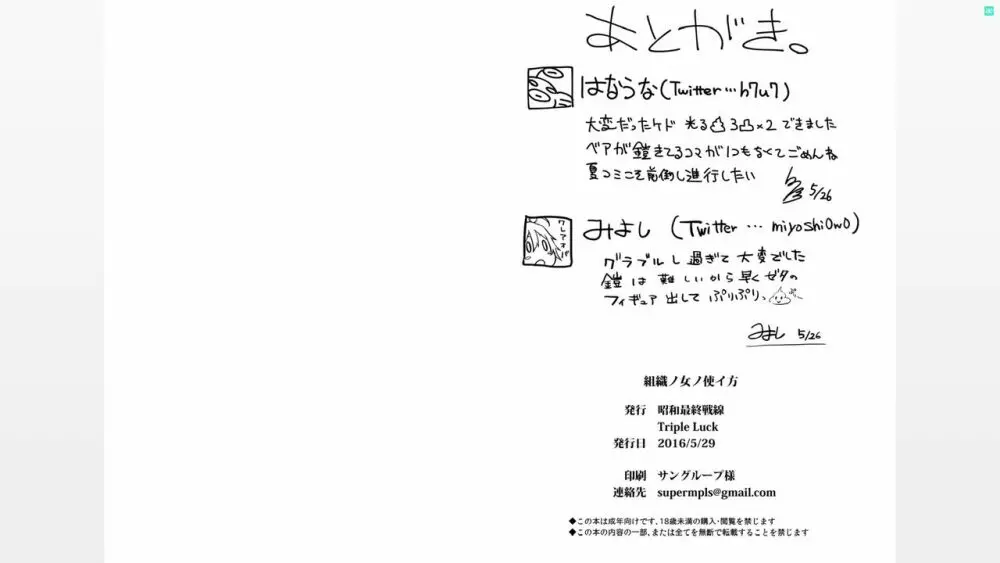 あとがき。
はなうな(Twitter…h7u7)
大変だったケド 光る 3 ×2 できました
ベアが鎧きてるコマが1つもなくてごめんね
夏コミこそ前倒し進行したい
5/26
みよし (Twitter … miyoshi0w0)
グラブルし過ぎて大変でした
鎧は難しいから早くゼタの
フィギュア出して ぷりぷり、
みよし 5/26
組織ノ女ノ使イ方
発行 昭和最終戦線
Triple Luck
発行日 2016/5/29
印刷 サングループ様
連絡先 supermpls@gmail.com
◆この本は成年向けです、18歳未満の購入・閲覧を禁じます
◆この本の内容の一部、または全てを無断で転載することを禁じます